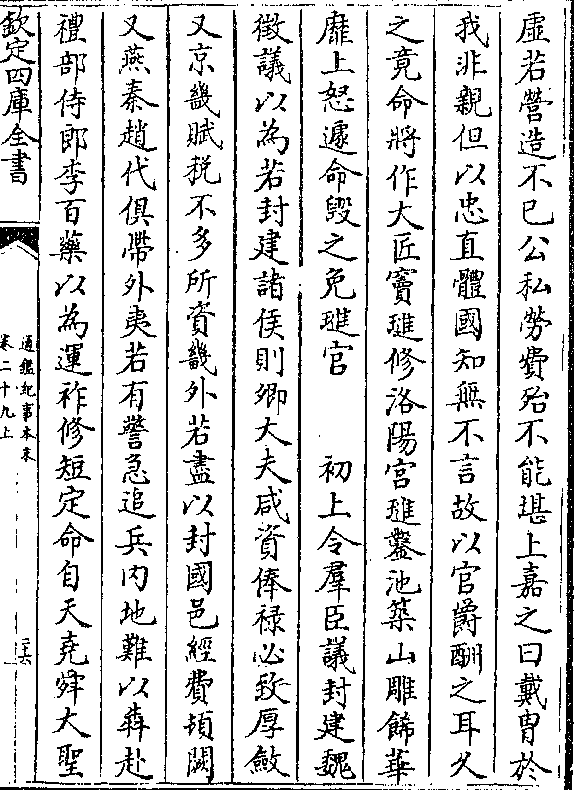 虚若營造不已公私勞費殆不能堪上嘉之曰戴胄於
我非親但以忠直體國知無不言故以官爵酬之耳久
之竟命將作大匠竇璡修洛陽宮璡鑿池築山雕飾華
靡上怒遽命毁之免璡官　初上令羣臣議封建魏
徵議以為若封建諸侯則卿大夫咸資俸禄必致厚斂
又京畿賦税不多所資畿外若盡以封國邑經費頓闕
又燕秦趙代俱帶外夷若有警急追兵内地難以犇赴
禮部侍郎李百藥以為運祚修短定命自天堯舜大聖
欽定四庫全書
通鑑紀事本末
卷二十九上
二六